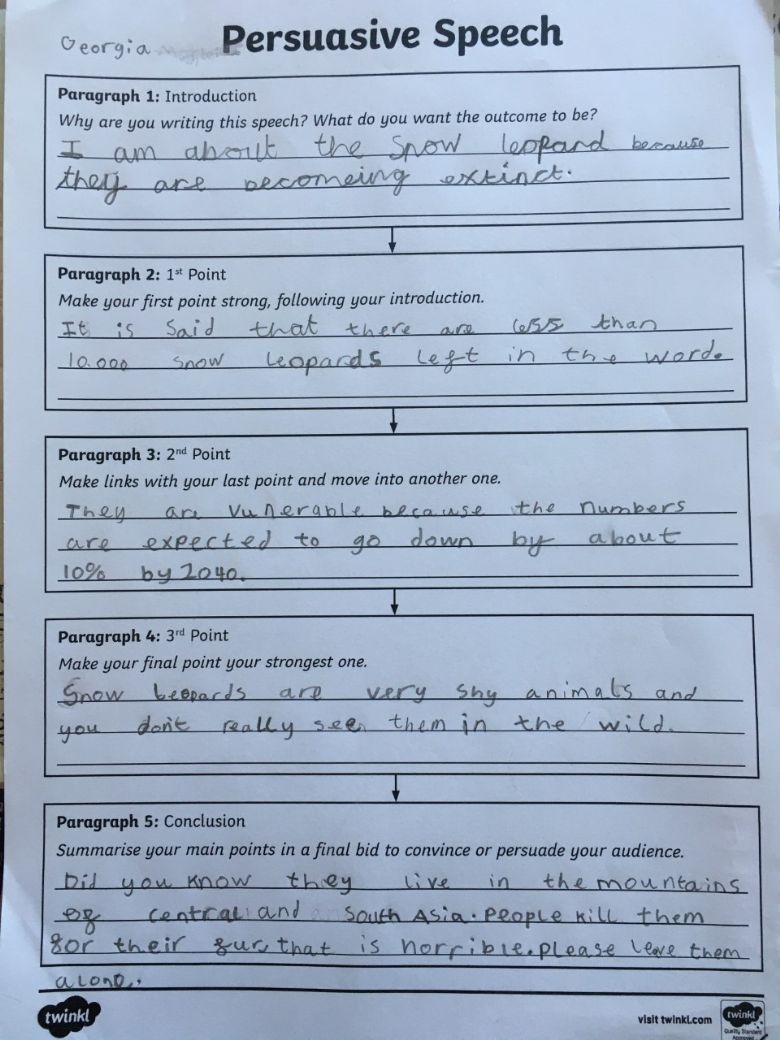 Georgia
Persuasive Speech
Paragraph 1: Introduction
Why are you writing this speech? What do you want the outcome to be?
I am about the snow leopard because
they are becomeing extinct.
Paragraph 2: 1st Point
Make your first point strong, following your introduction.
It is said that there are less than
10.000 snow leopards left in the word.
Paragraph 3: 2nd Point
Make links with your last point and move into another one.
They are vulnerable because the numbers
are expected to go down by about
10% by 2040.
Paragraph 4: 3rd Point
Make your final point your strongest one.
Snow leopards are very shy animals and
you don't really see them in the wild.
Paragraph 5: Conclusion
Summarise your main points in a final bid to convince or persuade your audience.
Did you know they live in the mountains
of central and South Asia. People kill them
for their fur, that is horrible. please leave them
alone.
twinkl
visit twinkl.com
twinkl
Quality Standard
Approved